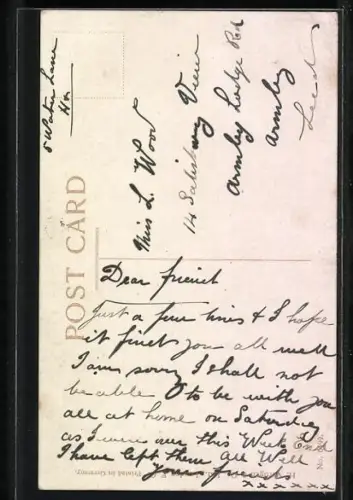 5 Water Lane
POST CARD
Miss L. Wood
14 Salisbury View
Armley Lodge Rd
Armley
Leeds
Dear friend
Just a few lines & I hope
it finds you all well
I am sorry I shall not
be able to be with you
all at home on Saturday
as I were over this Week End
I have left them All Well
your friend
x x x x x x x
Printed in Germany.